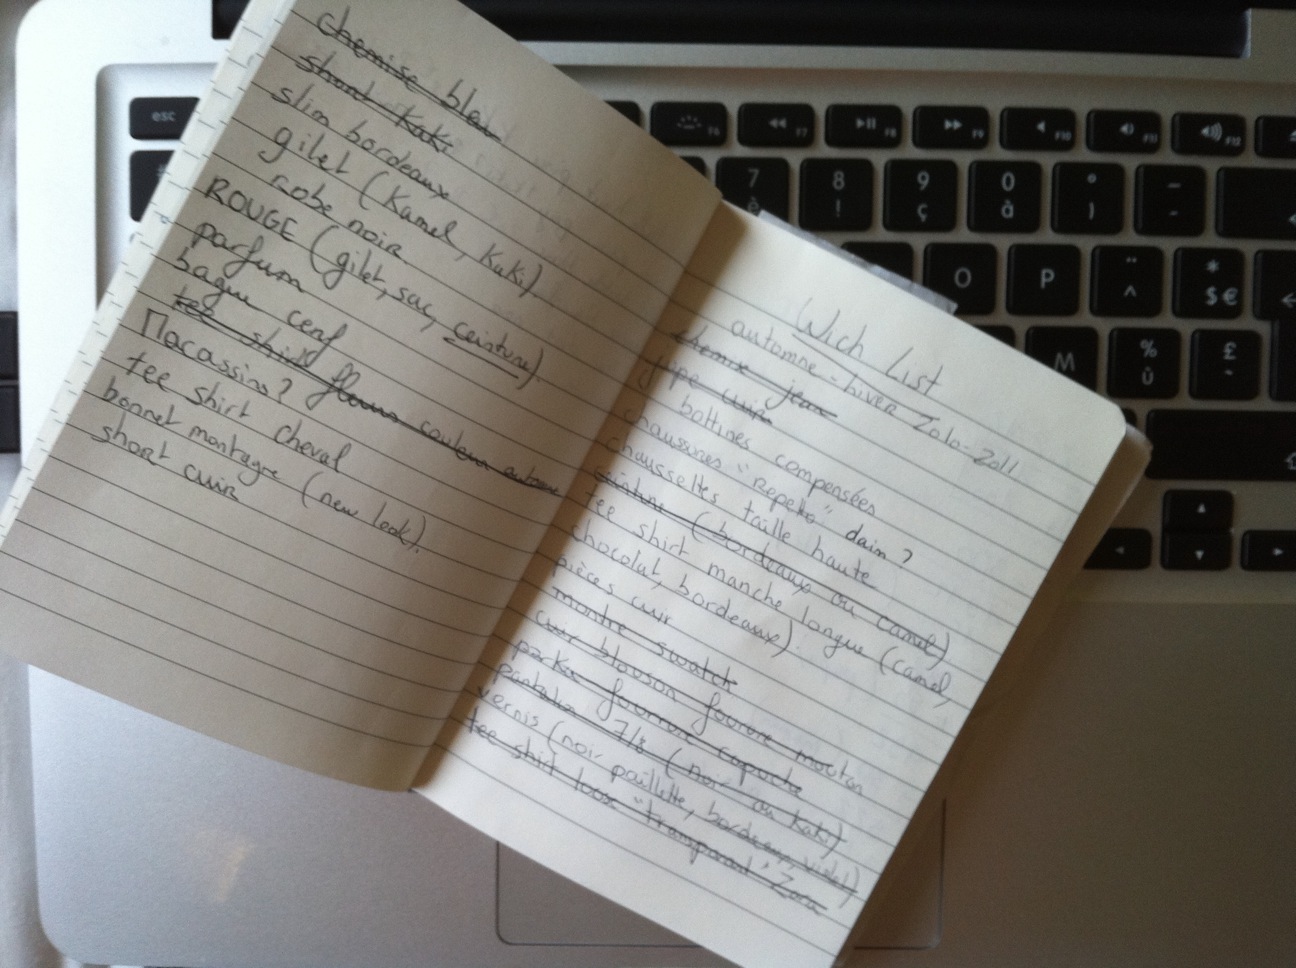 chemise bleu
short Kaki
slim bordeaux
gilet (Kamel, Kaki).
robe noir
ROUGE (gilet, sac, ceinture).
parfum
bague cerf
tee shirt fleurs couleur automne
Macassins?
tee shirt cheval
bonnet montagne (new look).
short cuir
Wich List
automne-hiver 2010-2011
chemise jean
jupe cuir
bottines compensées
chaussures "Repetto" daim?
chaussettes taille haute
ceinture (bordeaux ou camel)
tee shirt manche longue (camel,
chocolat, bordeaux).
pièces cuir
montre swatch
cuir blouson fourure mouton
parka fourrure capuche
pantalon 7/8 (noir ou kaki)
vernis (noir paillette, bordeaux, violet)
tee shirt loose "transparent" Zara
esc
F6
F7
F8
F9
F10
F11
F12
7
è
8
!
9
ç
0
à
°
)
_
-
O
P
¨
^
*
$ €
M
%
ù
£
`